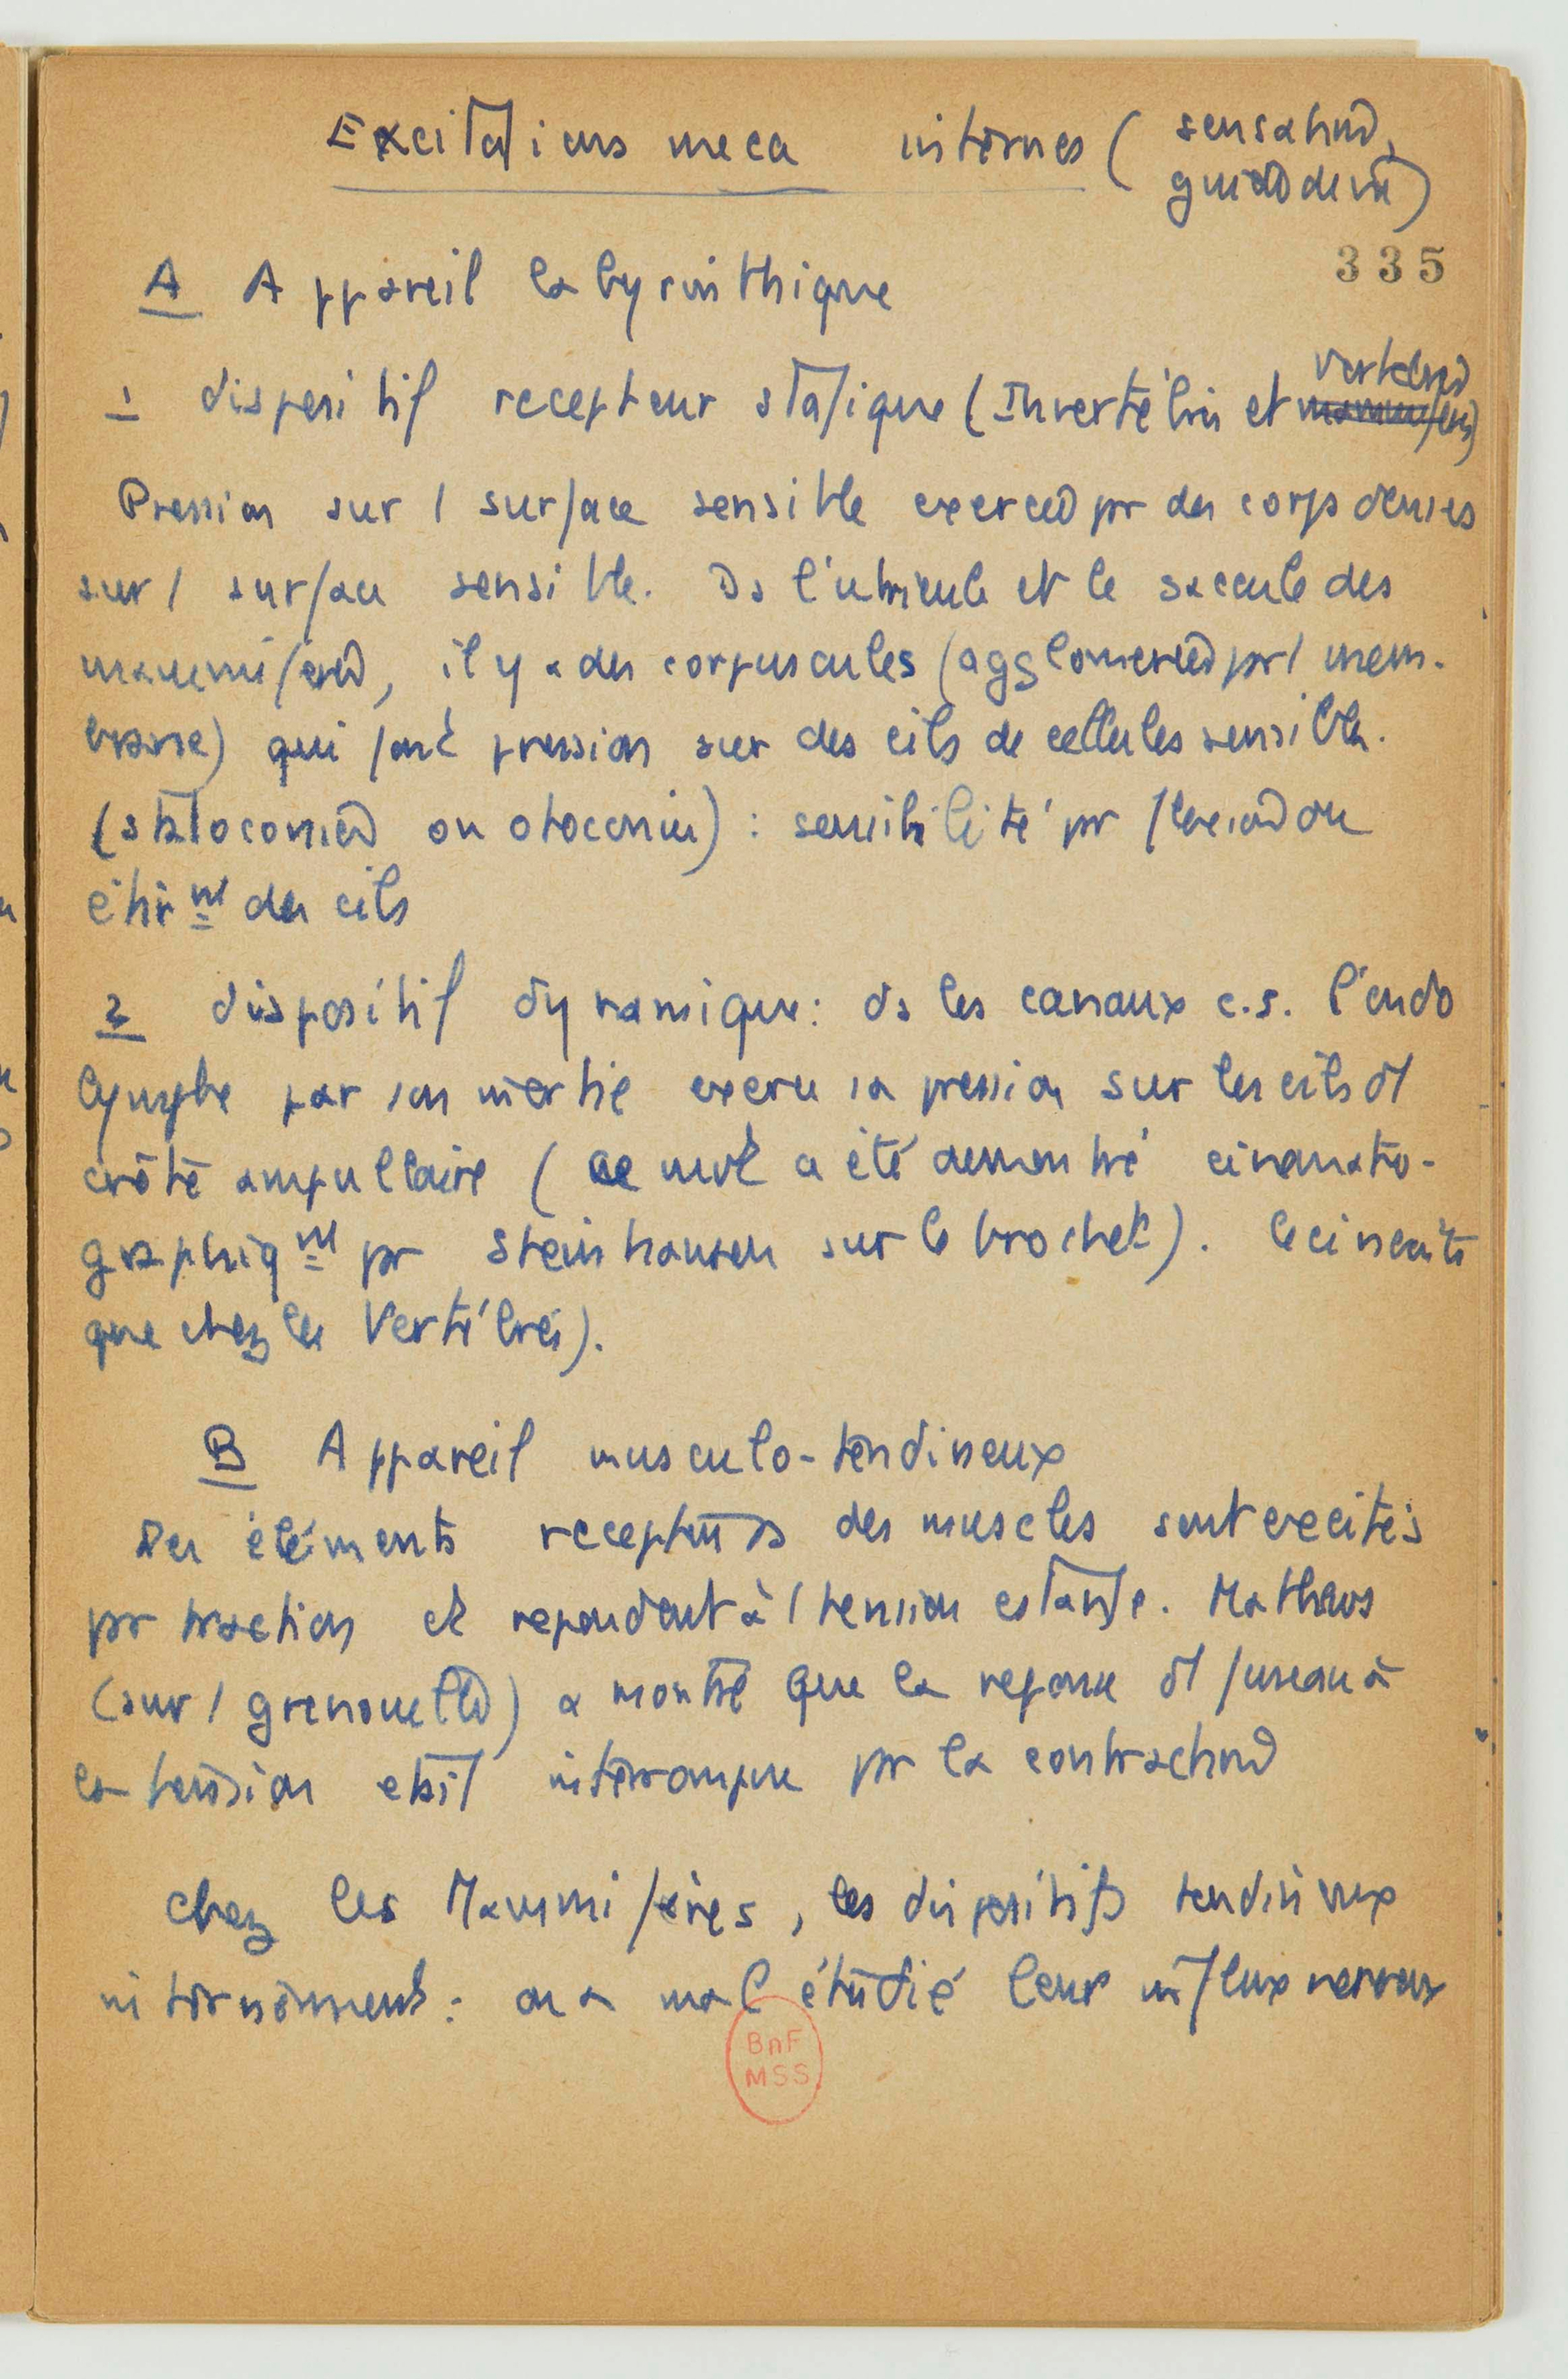 Excitations meca internes (sensations,
guidodeva)
335
A Appareil labyrinthique
1 dispositif recepteur statique (Invertébrés et Vertebrés mammifères)
Pression sur / surface sensible exercée pr des corps denses
sur / surface sensible. Ds l'utricule et le saccule des
mammifères, il y a des corpuscules (agglomerées pr / mem-
brane) qui font pression sur des cils de cellules sensibles.
(statoconies ou otoconies) : sensibilité pr flexion ou
étirmt des cils
2 dispositif dynamique : ds les canaux c.s. l'endo
lymphe par son inertie exerce sa pression sur les cils dl
crête ampullaire (ce mvt a été demontré cinemato-
graphiqmt pr Steinhausen sur le brochet).
que chez les Vertébrés).
B Appareil musculo-tendineux
Des éléments recepteurs ds des muscles sont excités
pr traction et repondent à / tension Mathews
(sur / grenouille) a montré que la reponse dl fuseau à
la tension etait interrompue pr la contraction
chez les Mammifères, les dispositifs tendineux
interviennent : on a mal étudié leur influx nerveux
BnF
MSS